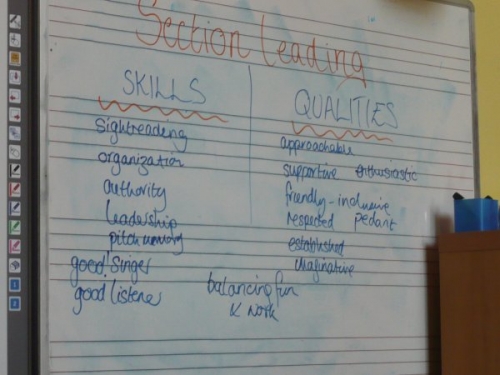 Section Leading
SKILLS
Sightreading
organization
authority
leadership
pitch memory
good singer
good listener
QUALITIES
approachable
supportive enthusiastic
friendly - inclusive
respected pedant
established
imaginative
balancing fun
& work